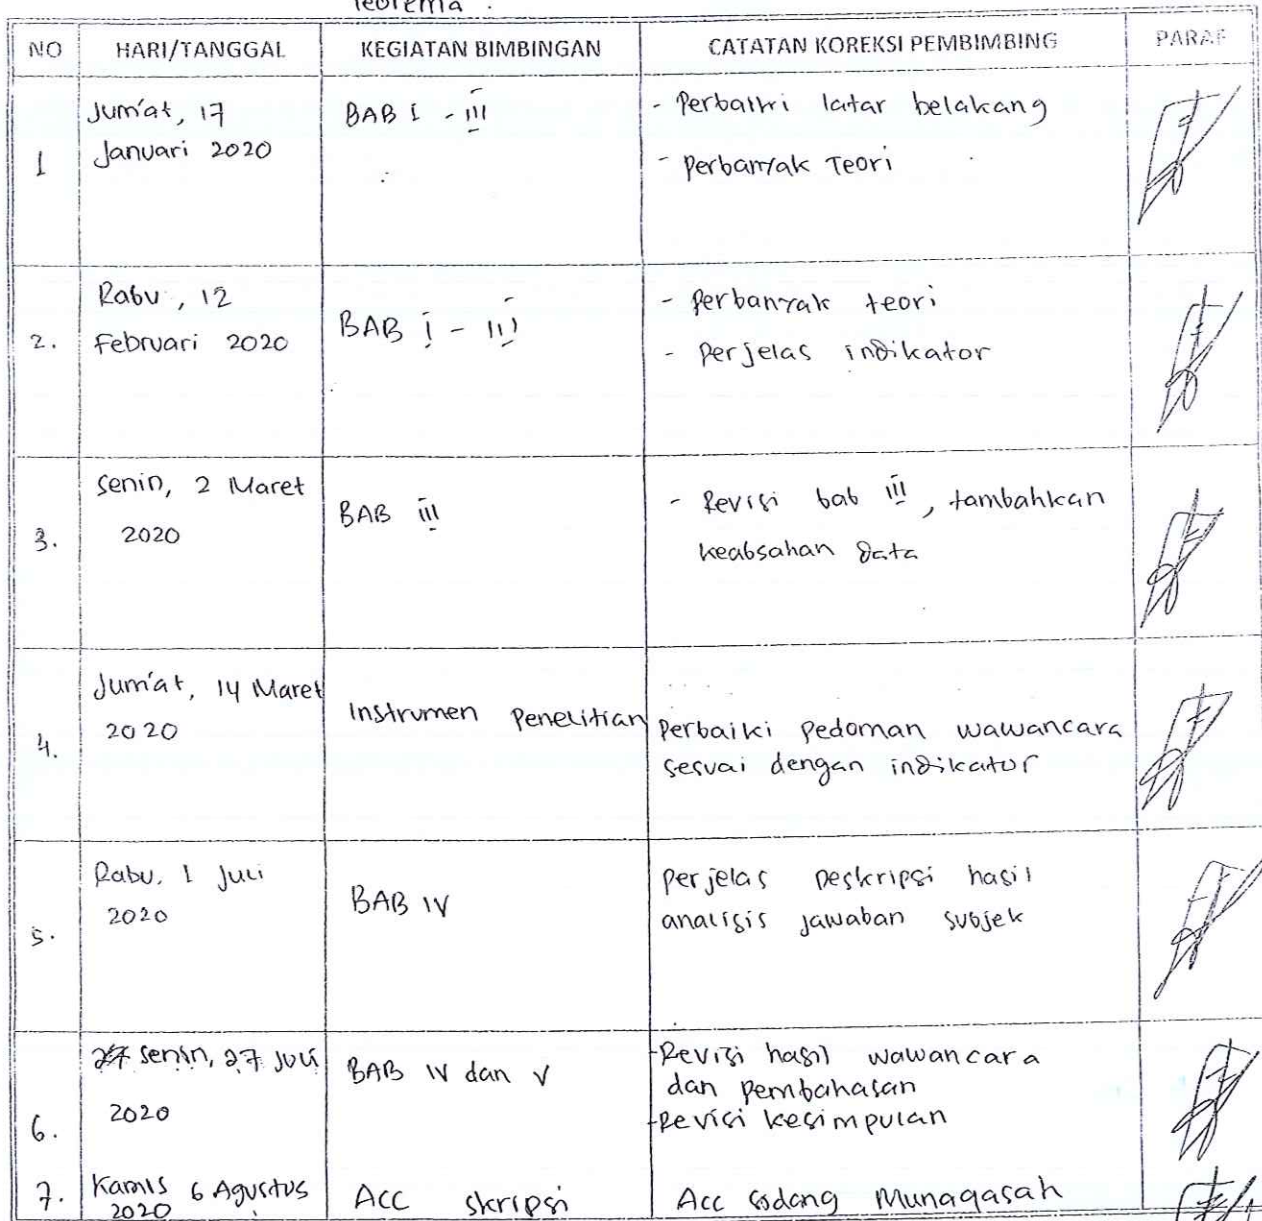 Teorema :
NO HARI/TANGGAL KEGIATAN BIMBINGAN CATATAN KOREKSI PEMBIMBING PARAF
1 Jum'at, 17 Januari 2020
BAB I - III
- Perbaiki latar belakang
- Perbanyak Teori
2. Rabu, 12 Februari 2020
BAB I - III
- Perbanyak teori
- Perjelas indikator
3. Senin, 2 Maret 2020
BAB III
- Revisi bab III, tambahkan
keabsahan data
4. Jum'at, 14 Maret 2020
Instrumen Penelitian
Perbaiki pedoman wawancara
sesuai dengan indikator
5. Rabu, 1 Juli 2020
BAB IV
Perjelas Deskripsi hasil
analisis jawaban subjek
6. Senin, 27 Juli 2020
BAB IV dan V
- Revisi hasil wawancara
dan pembahasan
- Revisi kesimpulan
7. Kamis 6 Agustus 2020
Acc skripsi
Acc sidang Munaqasah